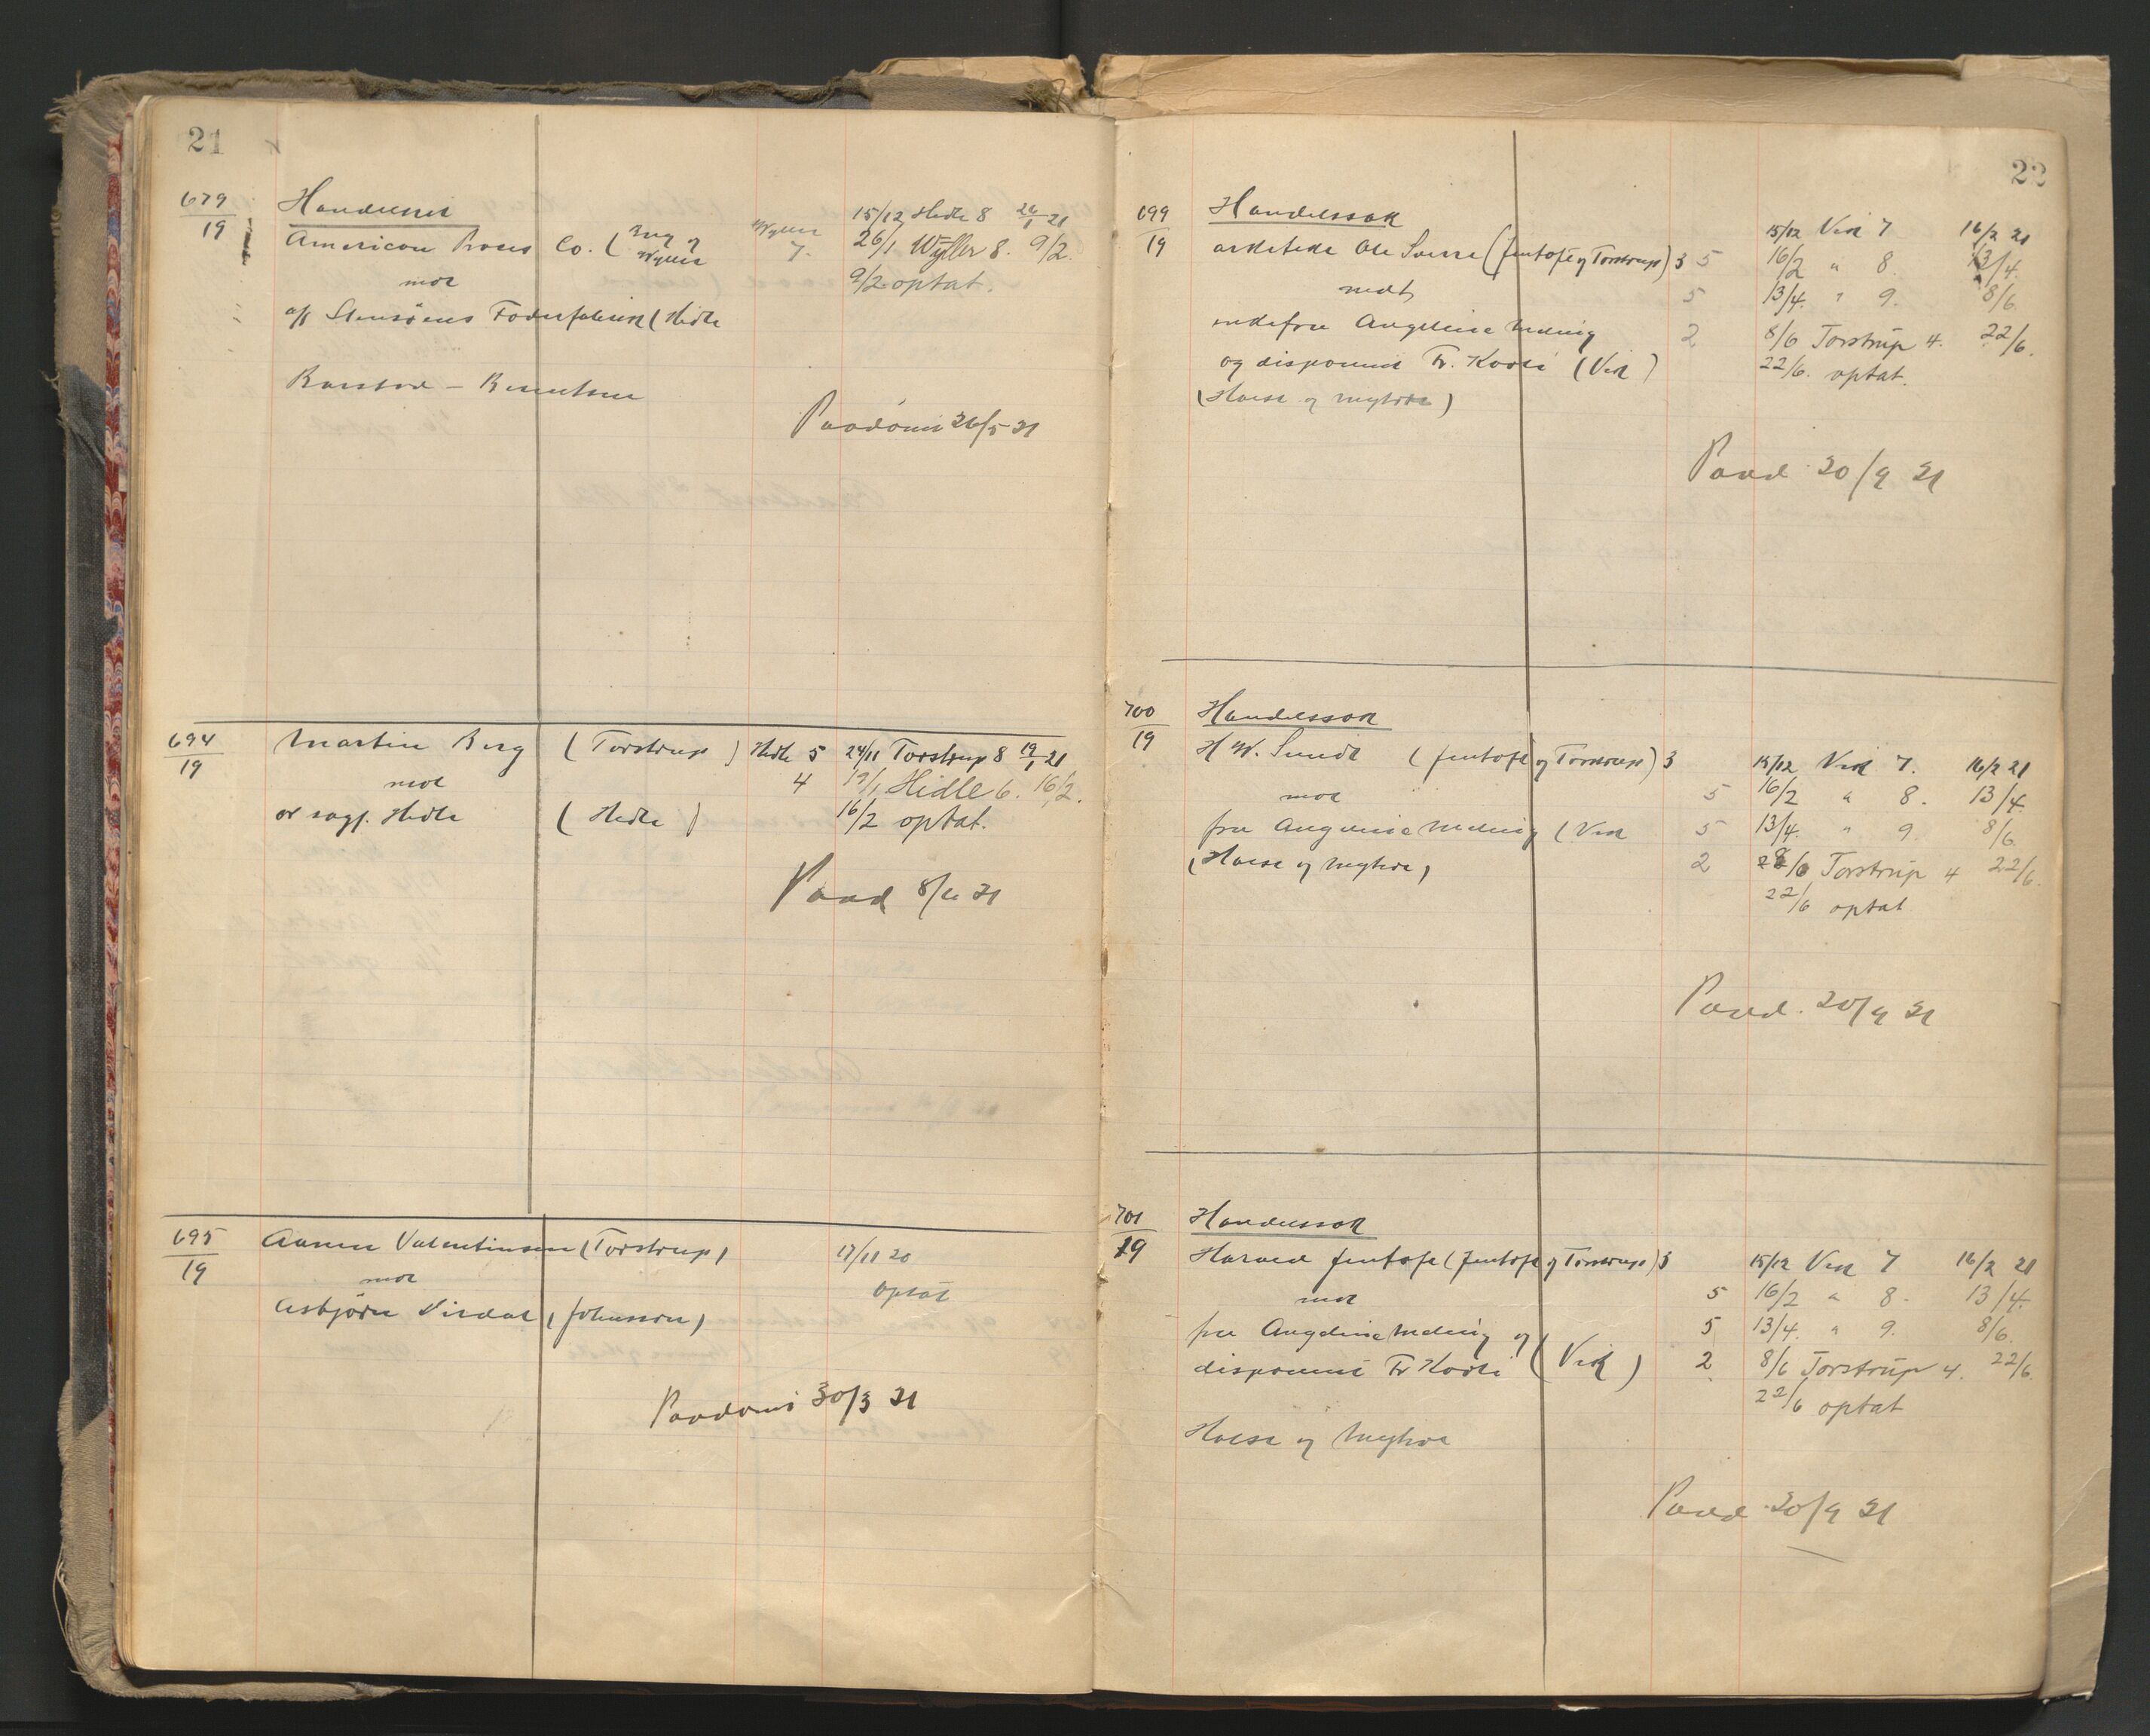 21
679
19
Handelssak
American Proces Co. ( og
Wyller
Wyller
7.
15/12 Hedle 8 26/1 21
26/1 Wyller 8. 9/2.
9/2 optat.
mot
a/s Stensöens Foderfabrik ( Hedle
Baastad - Berentsen
Paadömt 26/5 21
694
19
Martin Berg ( Torstrup ) Hedle 5 24/11 Torstrup 8 19/1 21
mot 4 19/1 Hidle 6. 16/2.
or sagf. Hedle ( Hedle ) 16/2 optat.
Paad 8/6 21
695
19
Valentinsen ( Torstrup ) 17/11 20
mot optat
Asbjörn Virdal ( Johnssen )
Paadömt 30/3 21
22
699
19
Handelssak
15/12 Vik 7 16/2 21
arkitekt Ole Sverre ( Jentoft og Torstrup ) 3 5 16/2 " 8. 13/4.
mot 5 13/4. " 9. 8/6
enkefru Angelina Meling 2 8/6 Torstrup 4. 22/6.
og disponent Fr. ( Vik ) 22/6. optat.
( og Myhre )
Paad 20/9 21
700
19
Handelssak
H W. Sundt ( Jentoft og Torstrup ) 3 15/12 Vik 7. 16/2 21
mot 5 16/2 " 8. 13/4.
fru Angelina Meling ( Vik 5 13/4. " 9 8/6.
( og Myhre ) 2 8/6 Torstrup 4 22/6.
22/6 optat
Paad. 20/9 21
701
19
Handelssak
Harald Jentoft ( Jentoft og Torstrup ) 3 15/12 Vik 7 16/2 21
mot 5 16/2 " 8. 13/4.
fru Angelina Meling og 5 13/4. " 9. 8/6.
disponent Fr ( Vik ) 2 8/6 Torstrup 4. 22/6.
22/6 optat
og Myhre
Paad 20/9 21